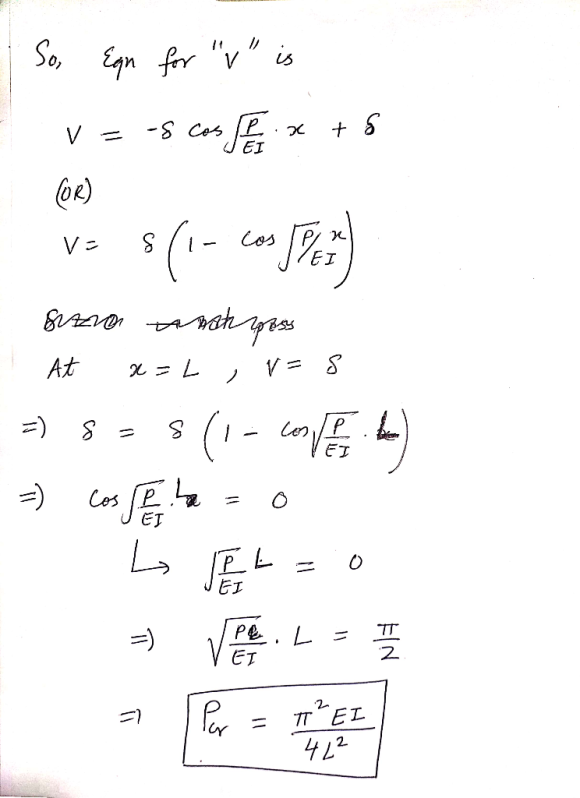 So, Eqn for "v" is
V = -δ cos √(P/EI) · x + δ
(OR)
V = δ (1 - cos √(P/EI) x)
At x = L , V = δ
=) δ = δ (1 - cos √(P/EI) · L)
=) cos √(P/EI) · L = 0
↳ √(P/EI) L = 0
=) √(P/EI) · L = π/2
=) Pcr = π²EI/4L²